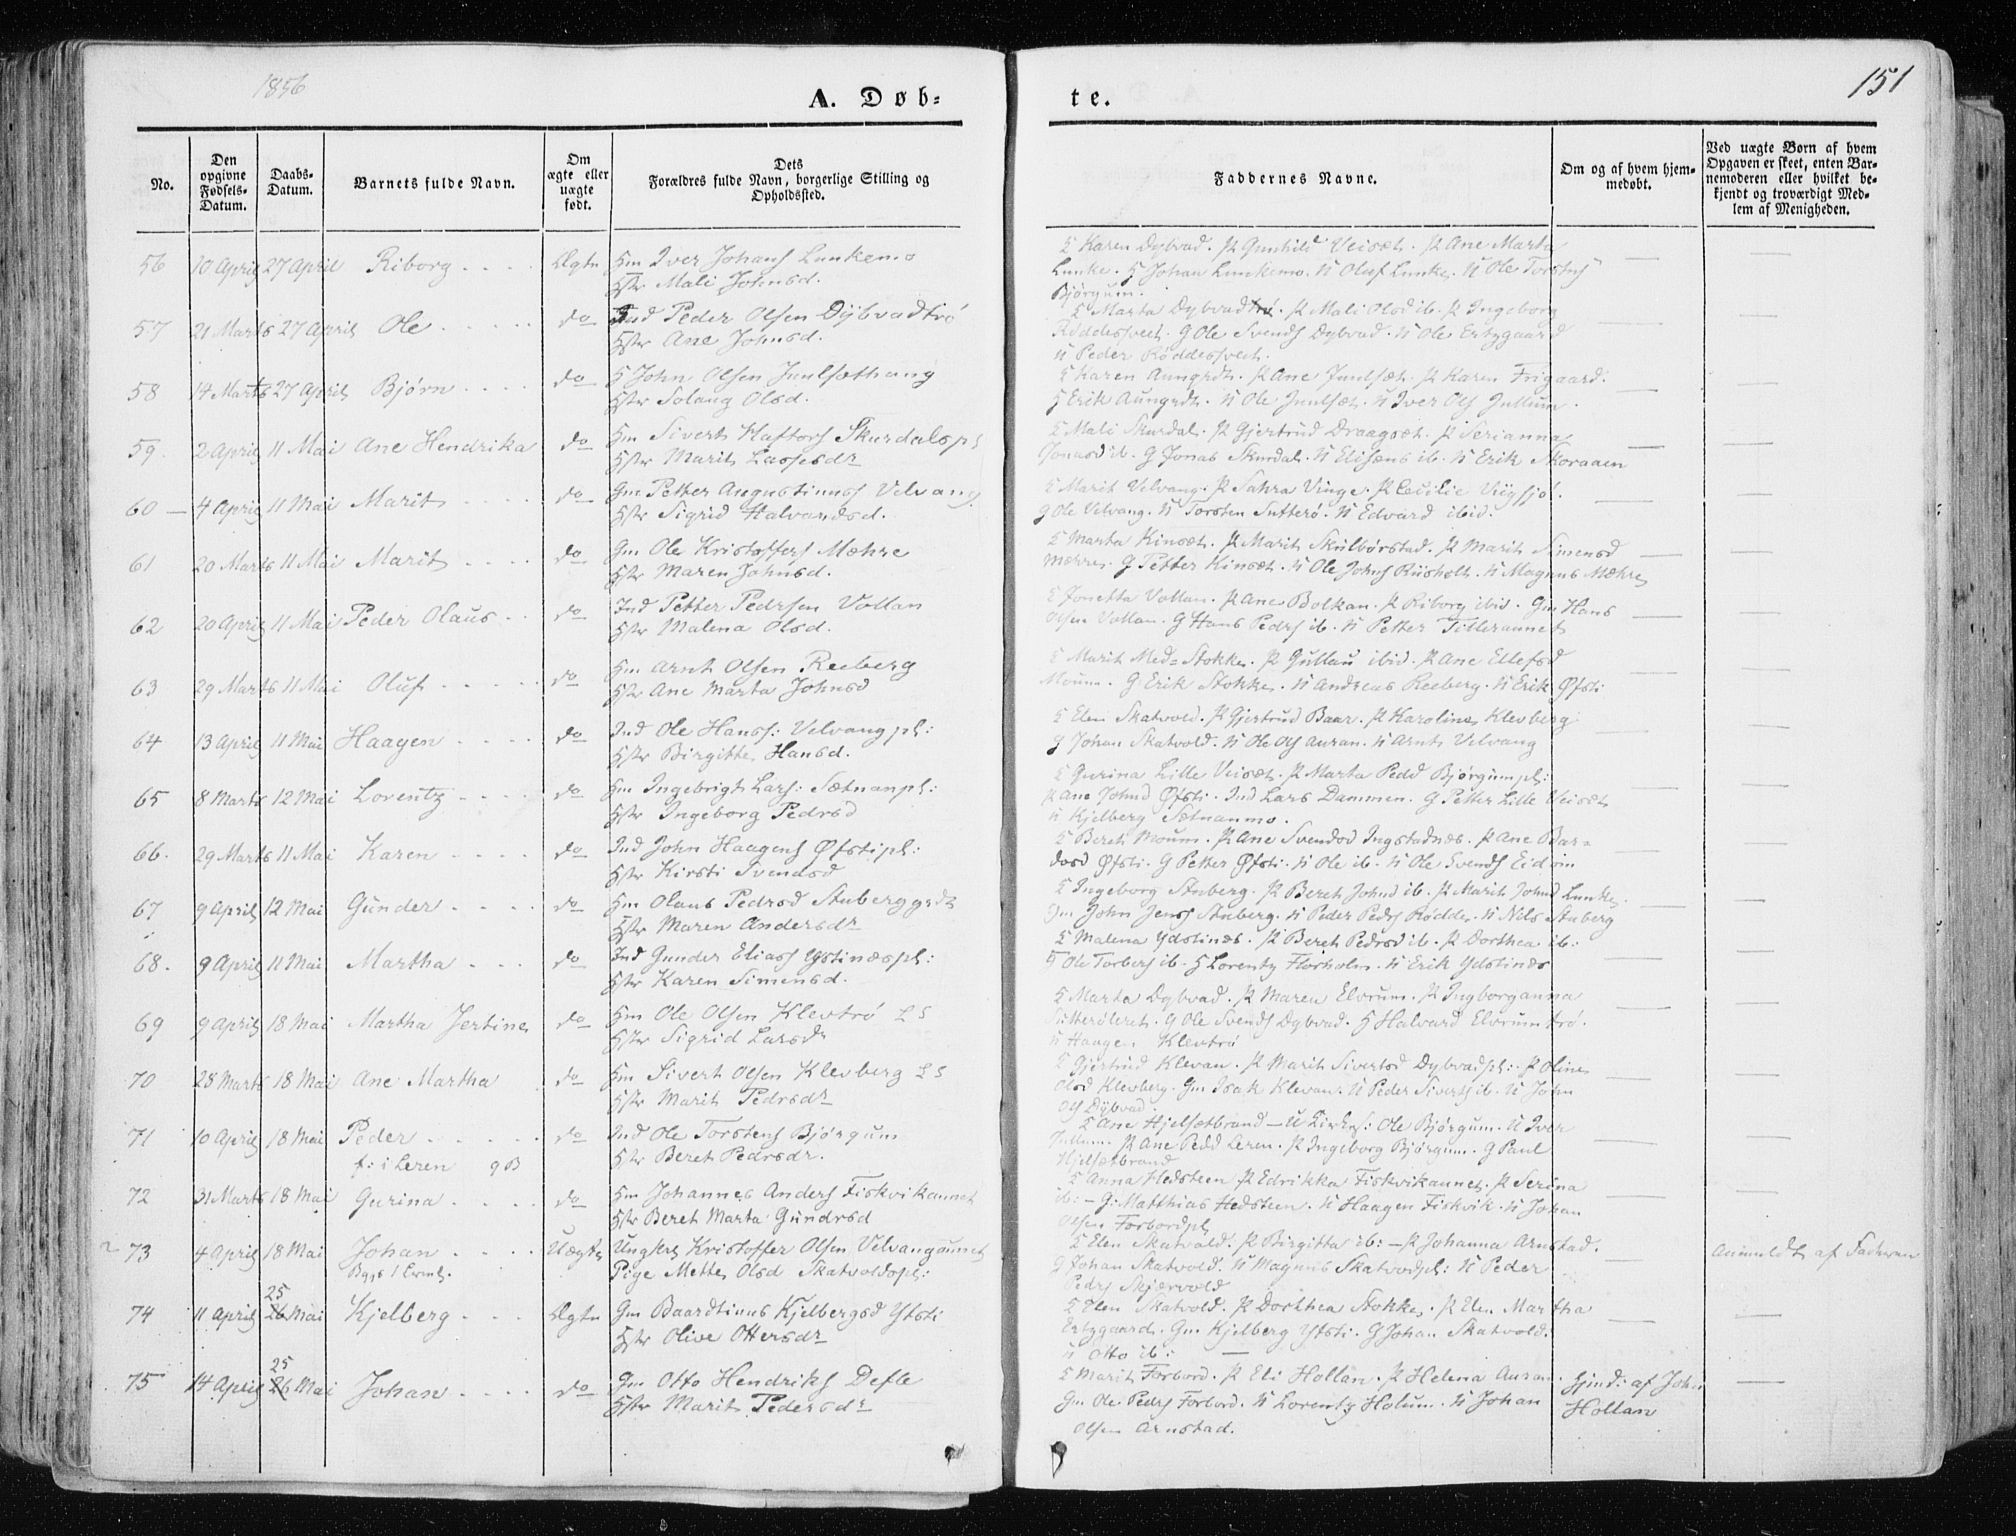 1856
A. Døb-
te.
151
No.
Den opgivne Fødsels-Datum.
Daabs-Datum.
Barnets fulde Navn.
Om ægte eller uægte født.
Dets Forældres fulde Navn, borgerlige Stilling og Opholdssted.
Faddernes Navne.
Om og af hvem hjem-medøbt.
Ved uægte Børn af hvem Opgaven er skeet, enten Bar-nemoderen eller hvilket be-kjendt og troværdigt Med-lem af Menigheden.
56 10 April 27 April Riborg Ægte Hm Iver Johans Lunkemo
Hstr Mali Johnsd.
K Karen Dybvad. P Gunhild Veisæt. P Ane Marta
Lunke. H Johan Lunkemo. U Oluf Lunke. U Ole Torstens
Bjørgum.
57 21 Marts 27 April Ole do Ind Peder Olsen Dybvadtrø
Hstr Ane Johnsd.
K Marta Dybvadtrø. P Mali Olsd ib. P Ingeborg
Røddesveet. G Ole Svends Dybvad. U Ole Ertzgaard
U Peder Røddesveet.
58 14 Marts 27 April Bjørn do H John Olsen Juulsæthaug
Hstr Solaug Olsd.
K Karen Aungrdt. P Ane Juulsæt. P Karen Frigaard.
H Erik Aungrdt. U Ole Juulsæt. U Iver Ols Jullum.
59. 2 April 11 Mai Ane Hendrika do Hm Sivert Haftors Skurdalspl
Hstr Marit Lassesdr
K Mali Skurdal. P Gjertrud Draagsæt. P Serianna
Jonasd ib. G Jonas Skurdal. U Elisæus ib. U Erik Skoraaen
60 4 April 11 Mai Marit do Gm Petter Augustinuss Velvang
Hstr Sigrid Halvardsd.
K Marit Velvang. P Sahra Vinge. P Cecilie Viigsjø.
G Ole Velvang. U Torsten Sutterø. U Edvard ibid.
61 20 Marts 11 Mai Marit do Gm Ole Kristoffers Mæhre
Hstr Maren Johnsd.
K Marta Kinsæt. P Marit Skulbørstad. P Marit Simensd
Mæhre. G Petter Kinsæt. U Ole Johns Ruusholt. U Magnus Mæhre
62 20 April 11 Mai Peder Olaus do Ind Petter Pedersen Vollan
Hstr Malena Olsd.
K Jonetta Vollan. P Ane Bolkan. P Riborg ibid. Gm Hans
Olsen Vollan. G Hans Peders ib. U Petter Tilleraunet
63 29 Marts 11 Mai Oluf do Hm Arnt Olsen Reeberg
Hstr Ane Marta Johnsd
K Marit Med=Stokke. P Gullau ibid. P Ane Ellefsd
Moum. G Erik Stokke. U Andreas Reeberg. U Erik Øfsti
64 13 April 11 Mai Haagen do Ind Ole Hanss: Velvangpl:
Hstr Birgitte Hansd.
K Elen Skatvold. P Gjertrud Baar. P Karoline Klevberg
G Johan Skatvold. U Ole Ols Auran. U Arnt Velvang
65 8 Marts 12 Mai Lorentz do Hm Ingebrigt Lars: Sætnanpl:
Hstr Ingeborg Pedrsd
K Gurina Lille Veisæt. P Marta Pedd Bjørgumpl:
P Ane Johnd Øfsti. Ind Lars Dammen. G Petter Lille Veisæt
U Kjelberg Sætnanmo.
66. 29 Marts 11 Mai Karen do Ind John Haagens Øfstipl:
Hstr Kirsti Svendsd
K Beret Moum. P Ane Svendsd Ingstadnæs. P Ane Bar=
dosd Øfsti. G Petter Øfsti. U Ole ib. U Ole Svends Eidum
67 9 April 12 Mai Gunder do Hm Olaus Pedrsd Stuberggrdt
Hstr Maren Andersdr
K Ingeborg Stuberg. P Beret Johnd ib. P Marit Johnd Lunke.
Gm John Jenss Stuberg. U Peder Peds Rødde. U Nils Stuberg
68. 9 April 11 Mai Martha do Ind Gunder Eliass Ystinæspl:
Hstr Karen Simensd.
K Malena Ydstinæs. P Beret Pedrsd ib. P Dorthea ib:
H Ole Torbers ib. H Lorentz Florholm. U Erik Ydstinæs
69 9 April 18 Mai Martha Jertine do Hm Ole Olsen Klevtrø LS
Hstr Sigrid Larsdr
K Marta Dybvad. P Maren Elvrum. P Ingborganna
Sutterøleret. G Ole Svends Dybvad. H Halvard Elvrumtrø.
U Haagen Klevtrø
70 28 Marts 18 Mai Ane Martha do Hm Sivert Olsen Klevberg LS
Hstr Marit Pedrsdr
K Gjertrud Klevan. P Marit Sivertsd Dybvadpl:. P Oline
Olsd Klevberg. Gm Isak Klevan. U Peder Siverts ib. U John
Ols Dybvad.
71 10 April 18 Mai Peder do Ind Ole Torstens Bjørgum
f: i Leren g B Hstr Beret Pedrsdr.
K Ane Hjelsætbrand — U Kirkes: Ole Bjørgum. U Iver
Jullum. P Ane Pedd Leren. P Ingeborg Bjørgum. G Paul
Hjelsætbrand
72 31 Marts 18 Mai Gurina do Hm Johannes Anders Fiskvikaunet
Hstr Beret Marta Gundrsd
K Anna Hedsteen. P Edrikka Fiskvikaunet. P Serina
ib: — G: Matthias Hedsteen. U Haagen Fiskvik. U Johan
Olsen Forbordpl
73 4 April 18 Mai Johan Uægte Ungkrl Kristoffer Olsen Velvangaunet
Pige Mette Olsd Skatvoldspl:
K Elen Skatvold. P Birgitta ib: — P Johanna Arnstad.
G Johan Skatvold. U Magnus Skatvoldpl: U Peder
Pedrs Skjærvold
Anmeldt af Faderen
74 11 April 25 26 Mai Kjelberg Ægte Gm Baardtinus Kjelbergsd Ytsti
Hstr Olive Ottersdr
K Elen Skatvold. P Dorthea Stokke. P Elen Martha
Ertzgaard. Gm Kjelberg Ytsti. G Johan Skatvold.
U Otto ib: —
75 14 April 25 26 Mai Johan do Gm Otto Hendriks Defle
Hstr Marit Pedersdr
K Marit Forbord. P Eli Hollan. P Helena Auran.
Gm Ole Pedrs Forbord. U Lorentz Holum. U Johan
Olsen Arnstad.
Hjmd: af John
Hollan